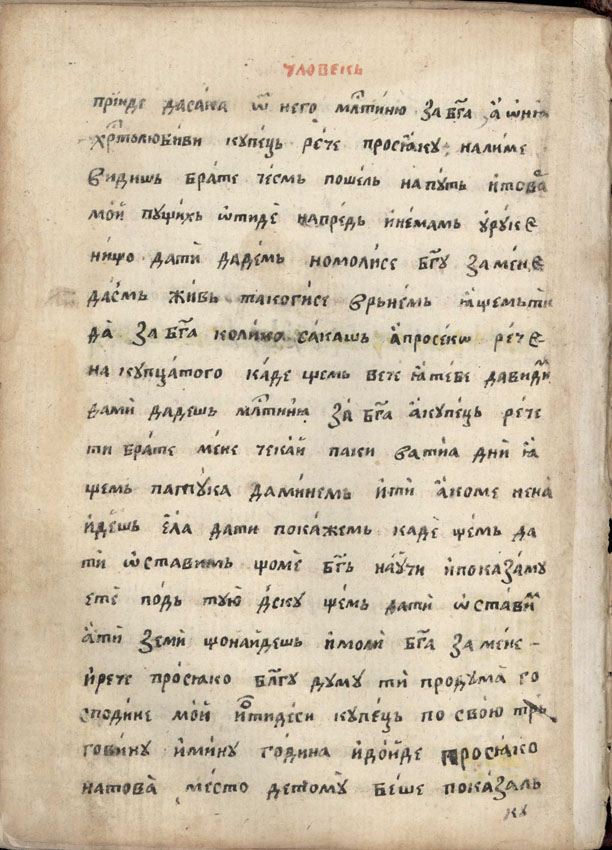 чловекь
прїиде дасака ѿ него млⷭ҇тиню за бг҃а , а ѡнь
хрⷭ҇толюбиви купець рече просїаку , налиме
видишь брате чесмь пошель на путь и това
мой пущихь ѿтиде напредь и немамь у руке
нищо дати дадемь но молисе бг҃у за мене
дасмь живь такогисе врьнемь ꙗщемьти
да за бг҃а колико сакашь а просекѡ рече
на купцатого каде щемь вече ꙗ тебе давиди
вами дадешь млⷭ҇тиню за бг҃а а купець рече
ти брате мене чекай паки ватиа дни ꙗ
щемь патука даминемь и ти ако ме нена
идешь ела дати покажемь каде щемь да
ти ѡставимь що ме бг҃ь научи и показа му
ете подь тую дску щемь дати ѡстави
а ти земи щонайдешь и моли бг҃а за мене -
и рече просїако благу думу ти продума го
сподине мой и ѿтидеси купець по свою трь
говину и мину година и дойде просїако
натова место детому беше показаль
кѵ